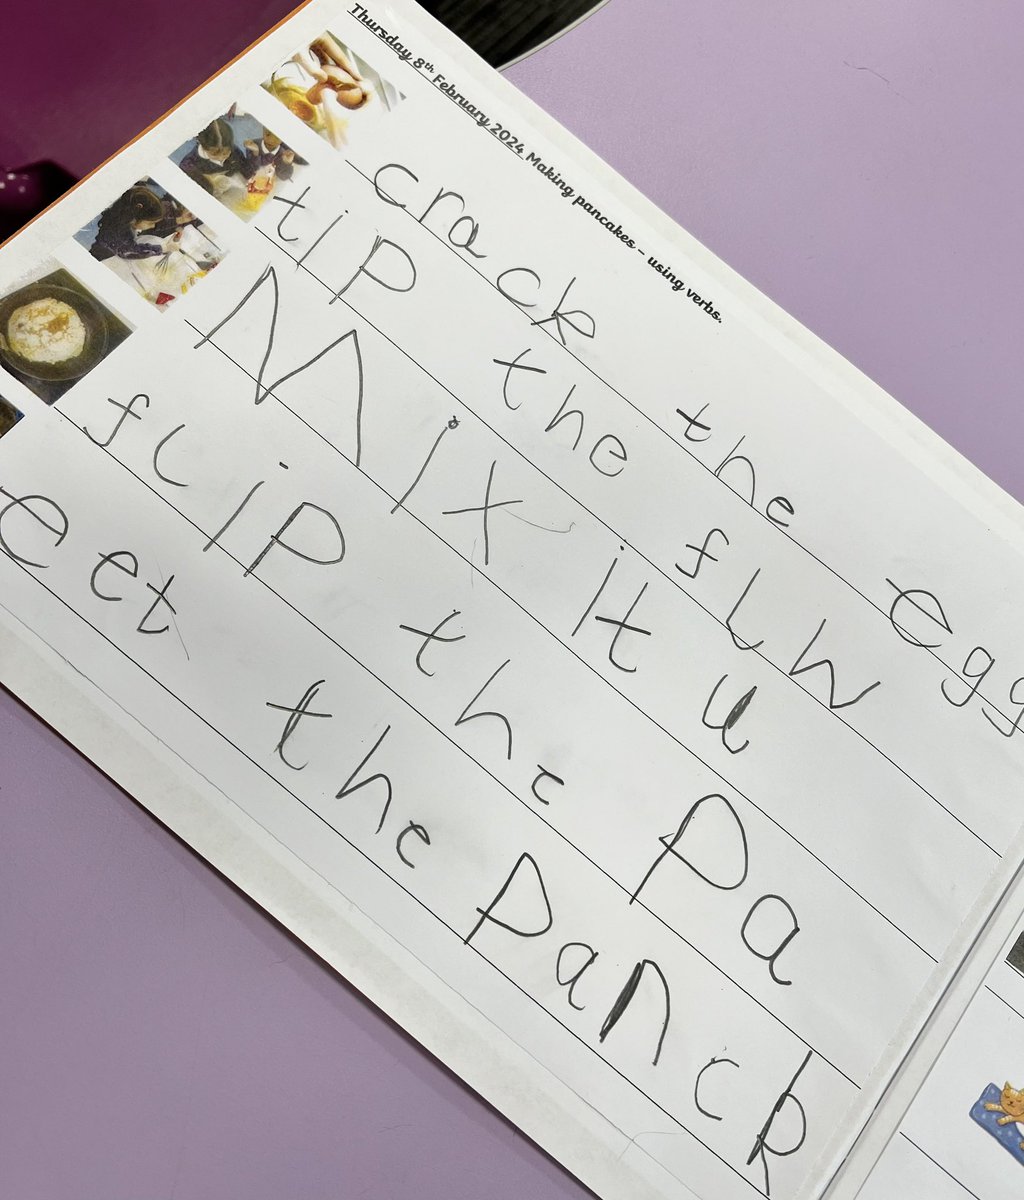 Thursday 8th February 2024 Making pancakes – using verbs.
crack the egg
tip the flw
Mix it u
flip the pa
eet the panck